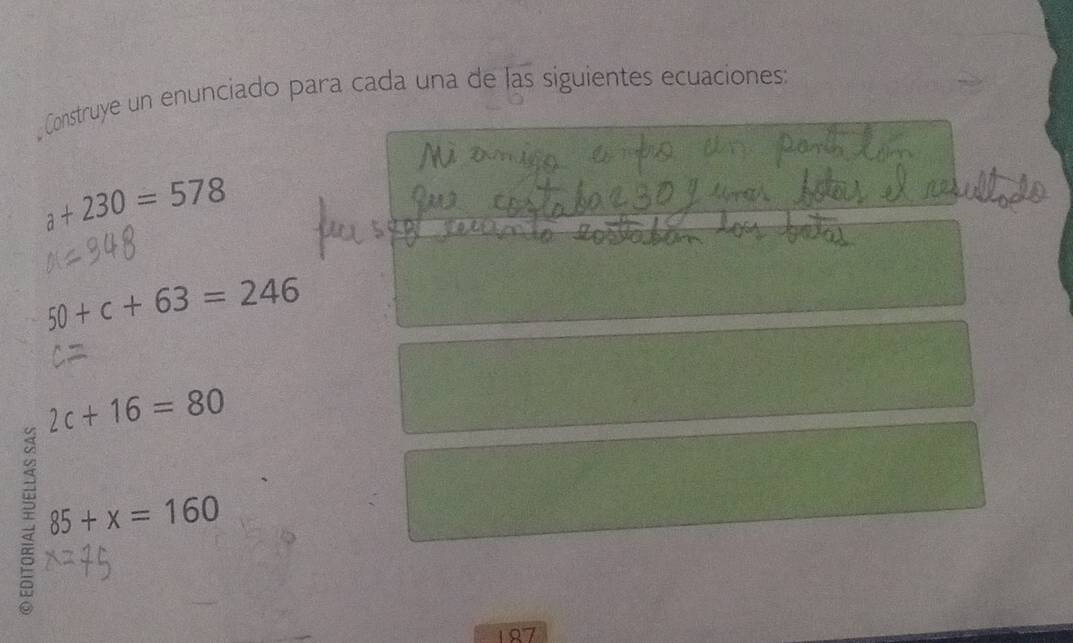 Construye un enunciado para cada una de las siguientes ecuaciones:
Mi amigo compro un pantalon
que costaba 230 y unas botas el resultado
fue 578 cuanto costaban las botas
a + 230 = 578
a = 348
50 + c + 63 = 246
c =
2c + 16 = 80
85 + x = 160
x = 75
© EDITORIAL HUELLAS SAS
187